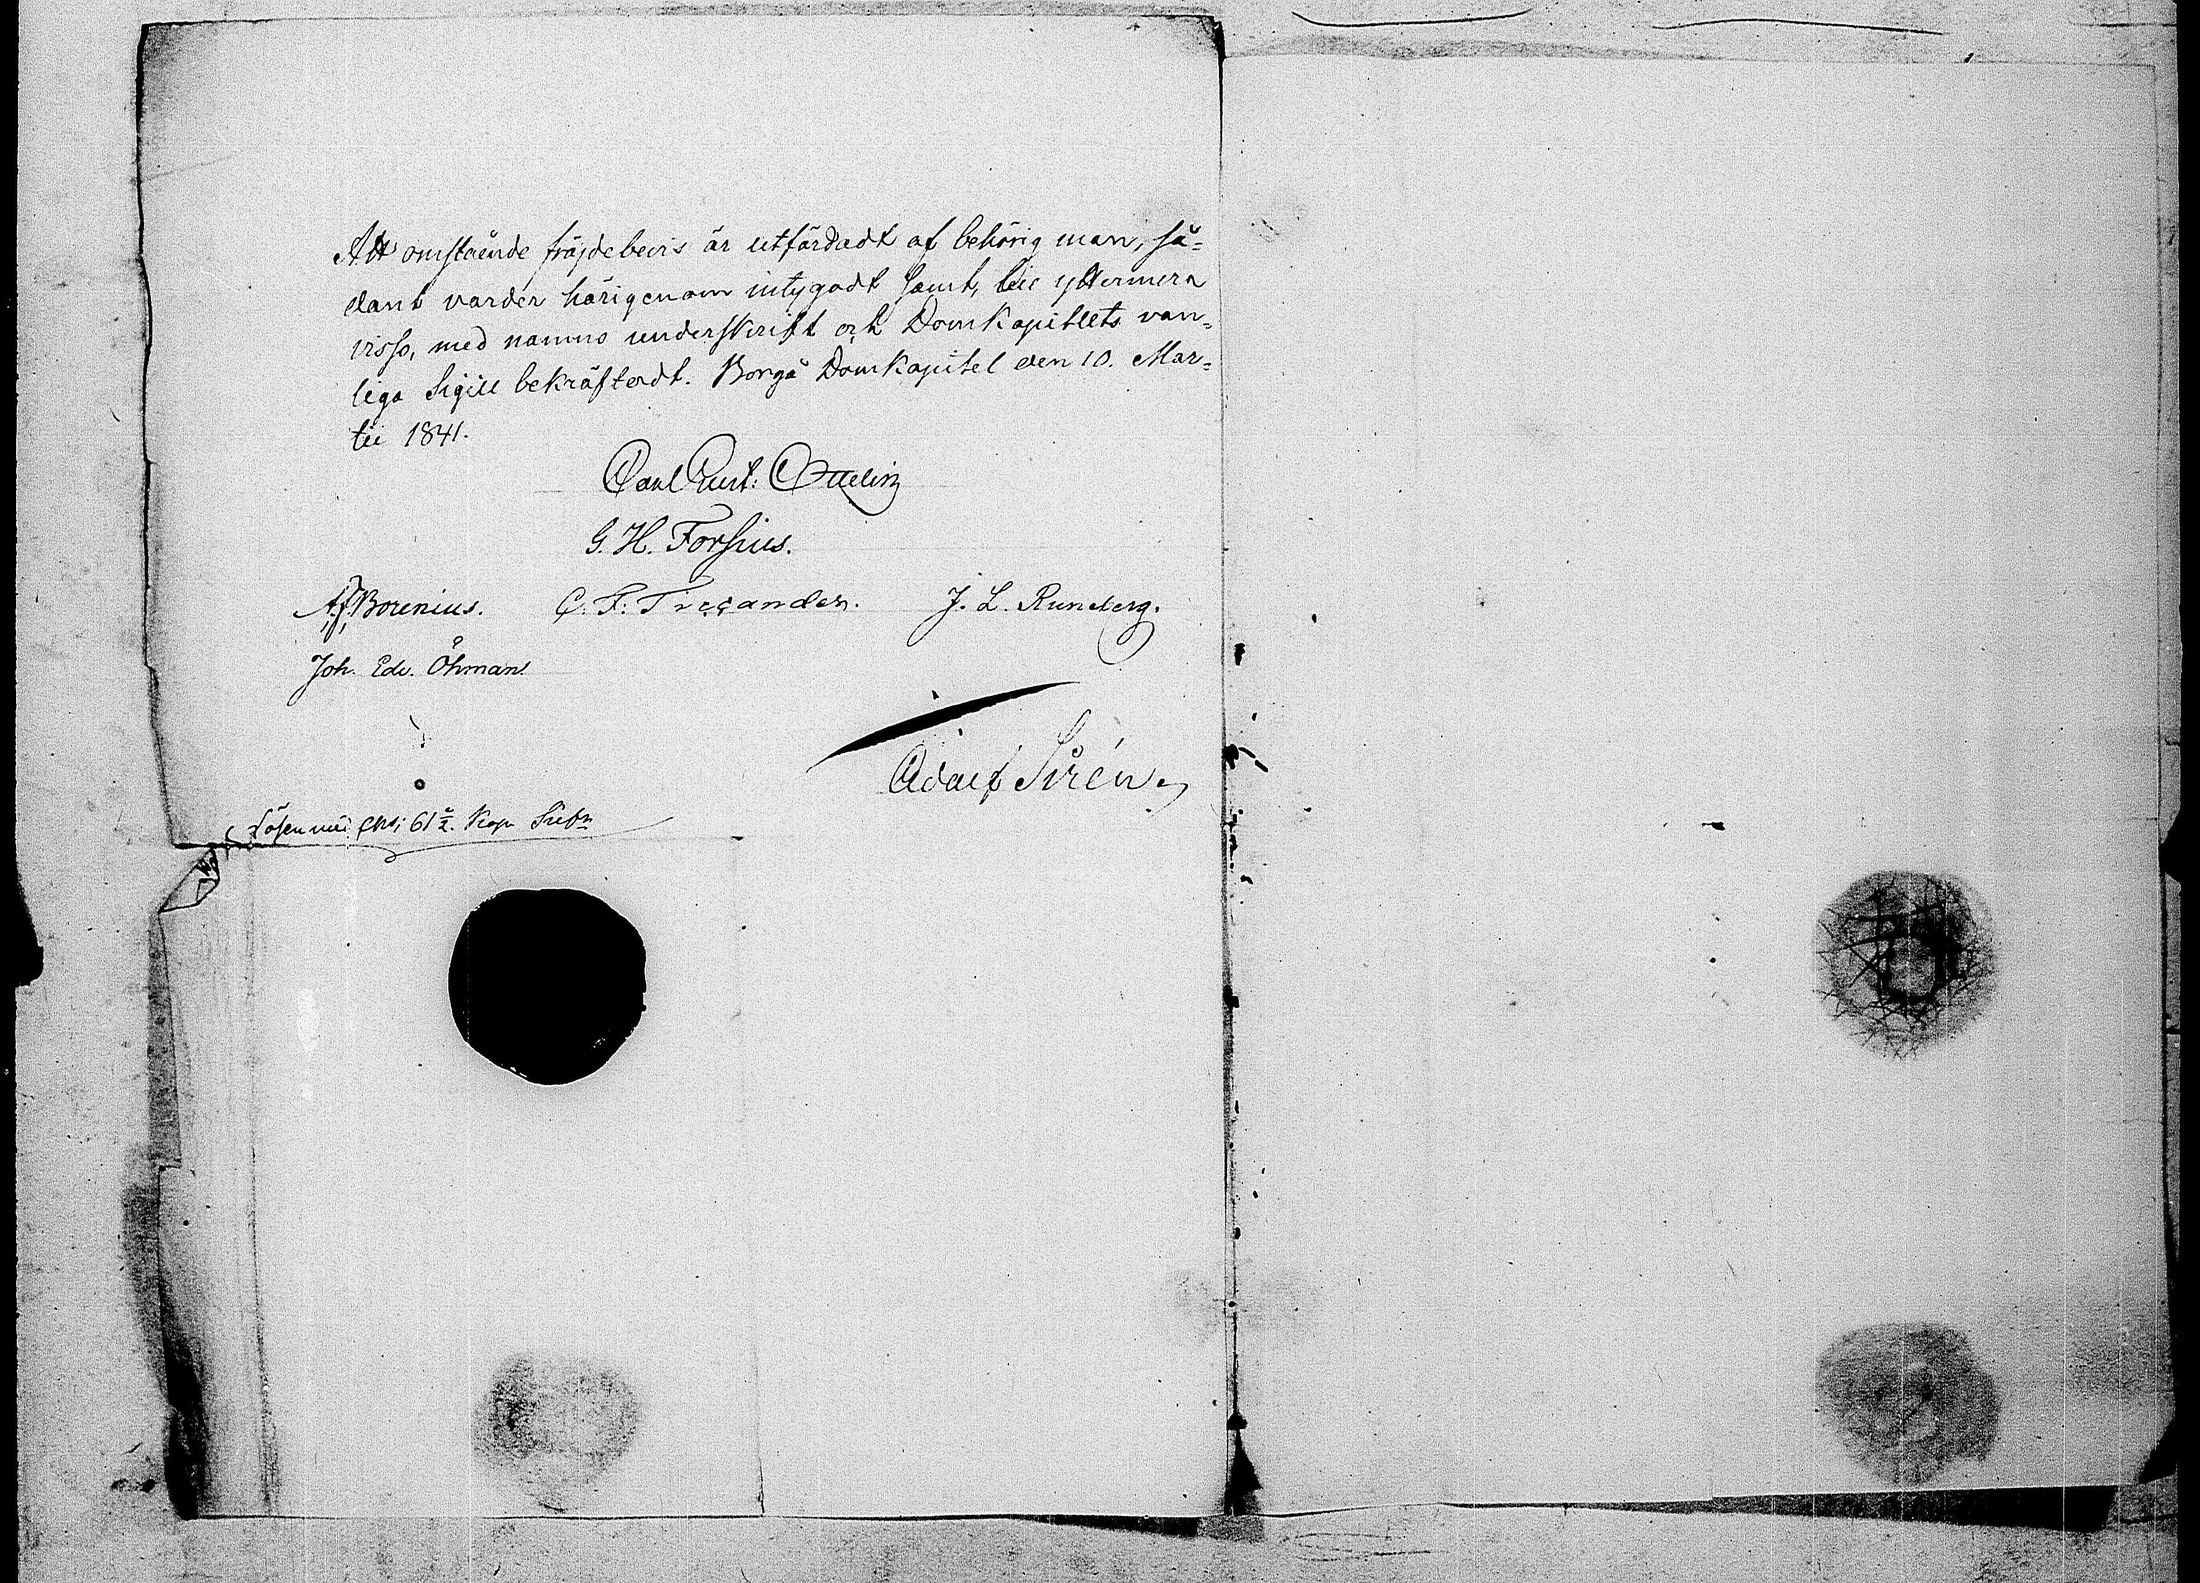 Att omstående fräjdebevis är utfärdadt af behörig man, så=
dant varder härigenom intygadt samt, till yttermera
visso, med namns underskrift och DomKapitlets van=
liga Sigill bekräftadt. Borgå DomKapitel den 10. Mar=
tii 1841.
Carl Gust: Ottelin
G. H. Forsius.
A. J. Borenius. C. F: Ticcander. J. L. Runeberg.
Joh. Edv. Öhman.
Adolf Sirén
Lösen med 61 ½. Kop Silfr